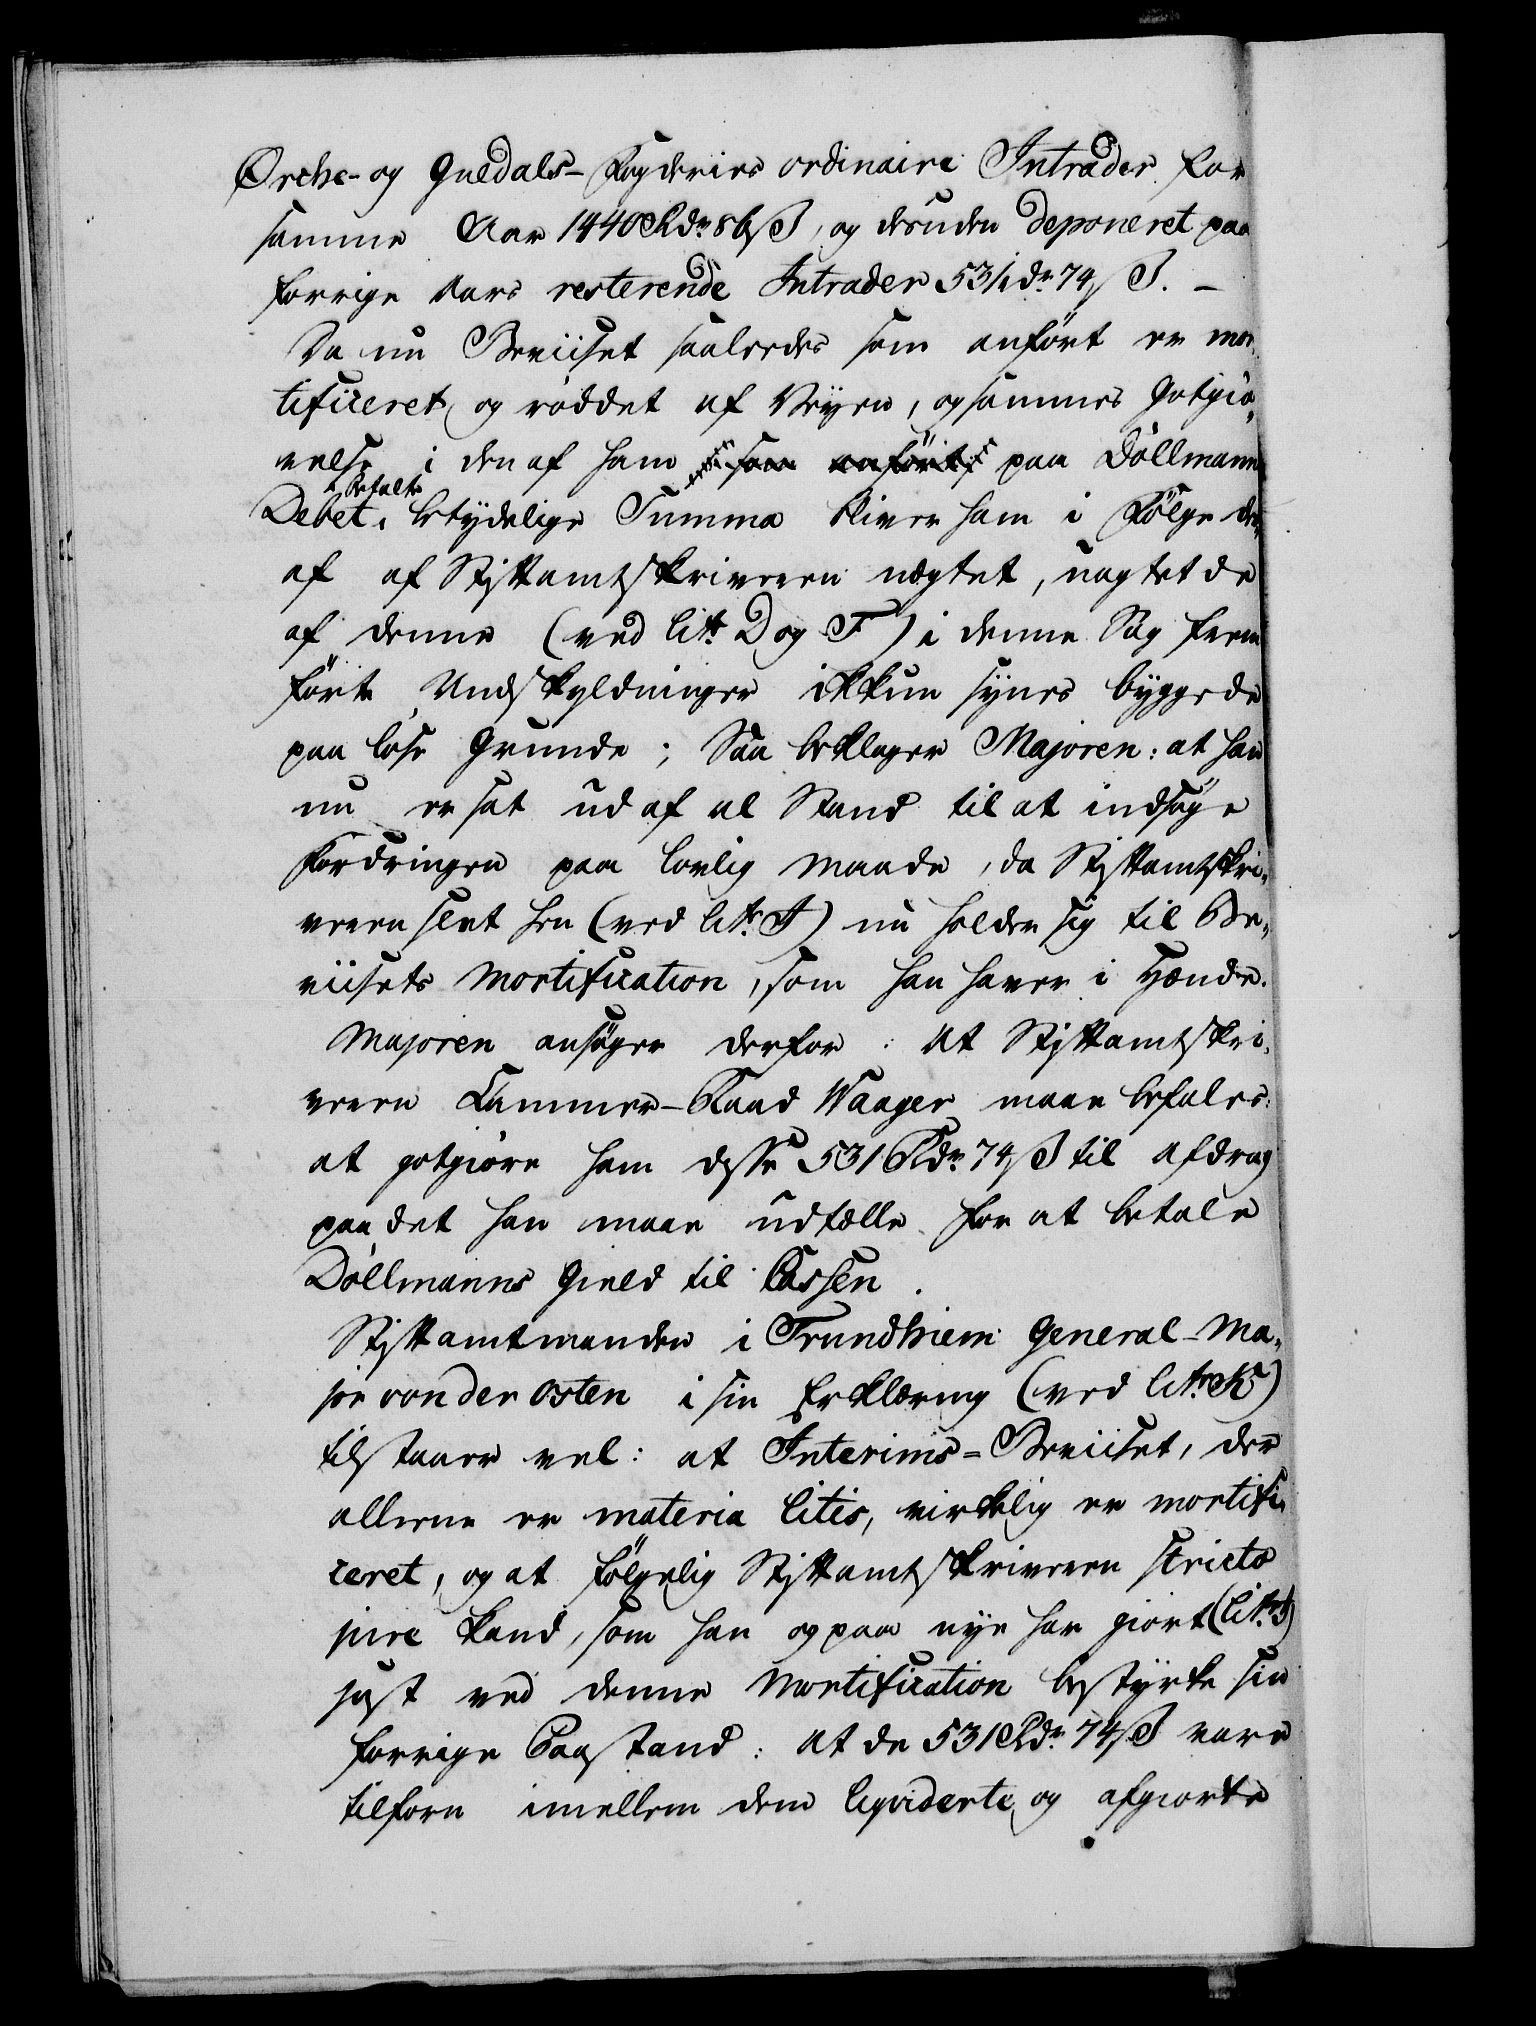 Ørche- og Guldals-Fogderiers ordinaire Intrader for
samme Aar 1440 Rdr 86 ß, og desuden deponeret paa
forrige Aars resterende Intrader 531 rdr 74 ß. –
Da nu Beviiset saaledes som anført er mor-
tificeret og røddet af Veyen, og sammes Gotgiø-
relse i den af ham som anført paa Döllmanns
betalte
Debet, betydelige Summa bliver ham i Følge der-
af af Stiftamtskriveren nægtet, uagtet de
af denne (ved Litr. D og F) i denne Sag frem
førte Undskyldninger ikkun synes byggede
paa løse Grunde; Saa beklager Majoren: at han
nu er sat ud af al Stand til at indsøge
Fordringen paa lovlig Maade, da Stiftamtskri-
veren slet hen (ved Litr. I) nu holder sig til Be-
viisets Mortification, som han haver i Hænde.
Majoren ansøger derfor: At Stiftamtskri-
veren Cammer-Raad Waager maae befales:
at gotgiøre ham disse 531 Rdr 74 ß til Afdrag
paa det han maae udtælle for at betale
Döllmanns Gield til Cassen.
Stiftamtmanden i Trundhiem General-Ma-
jor von der Osten i sin Erklæring (ved Litr. K)
tilstaaer vel: at Interims-Beviiset, der
allene er materia litis, virkelig er mortifi-
ceret, og at følgelig Stiftamtskriveren stricto
jure kand, som han og paa nye har giort (Litr. I)
just ved denne Mortification bestyrke sin
forrige Paastand: at de 531 Rdr 74 ß vare
tilforn imellem dem liqviderte og afgiorte